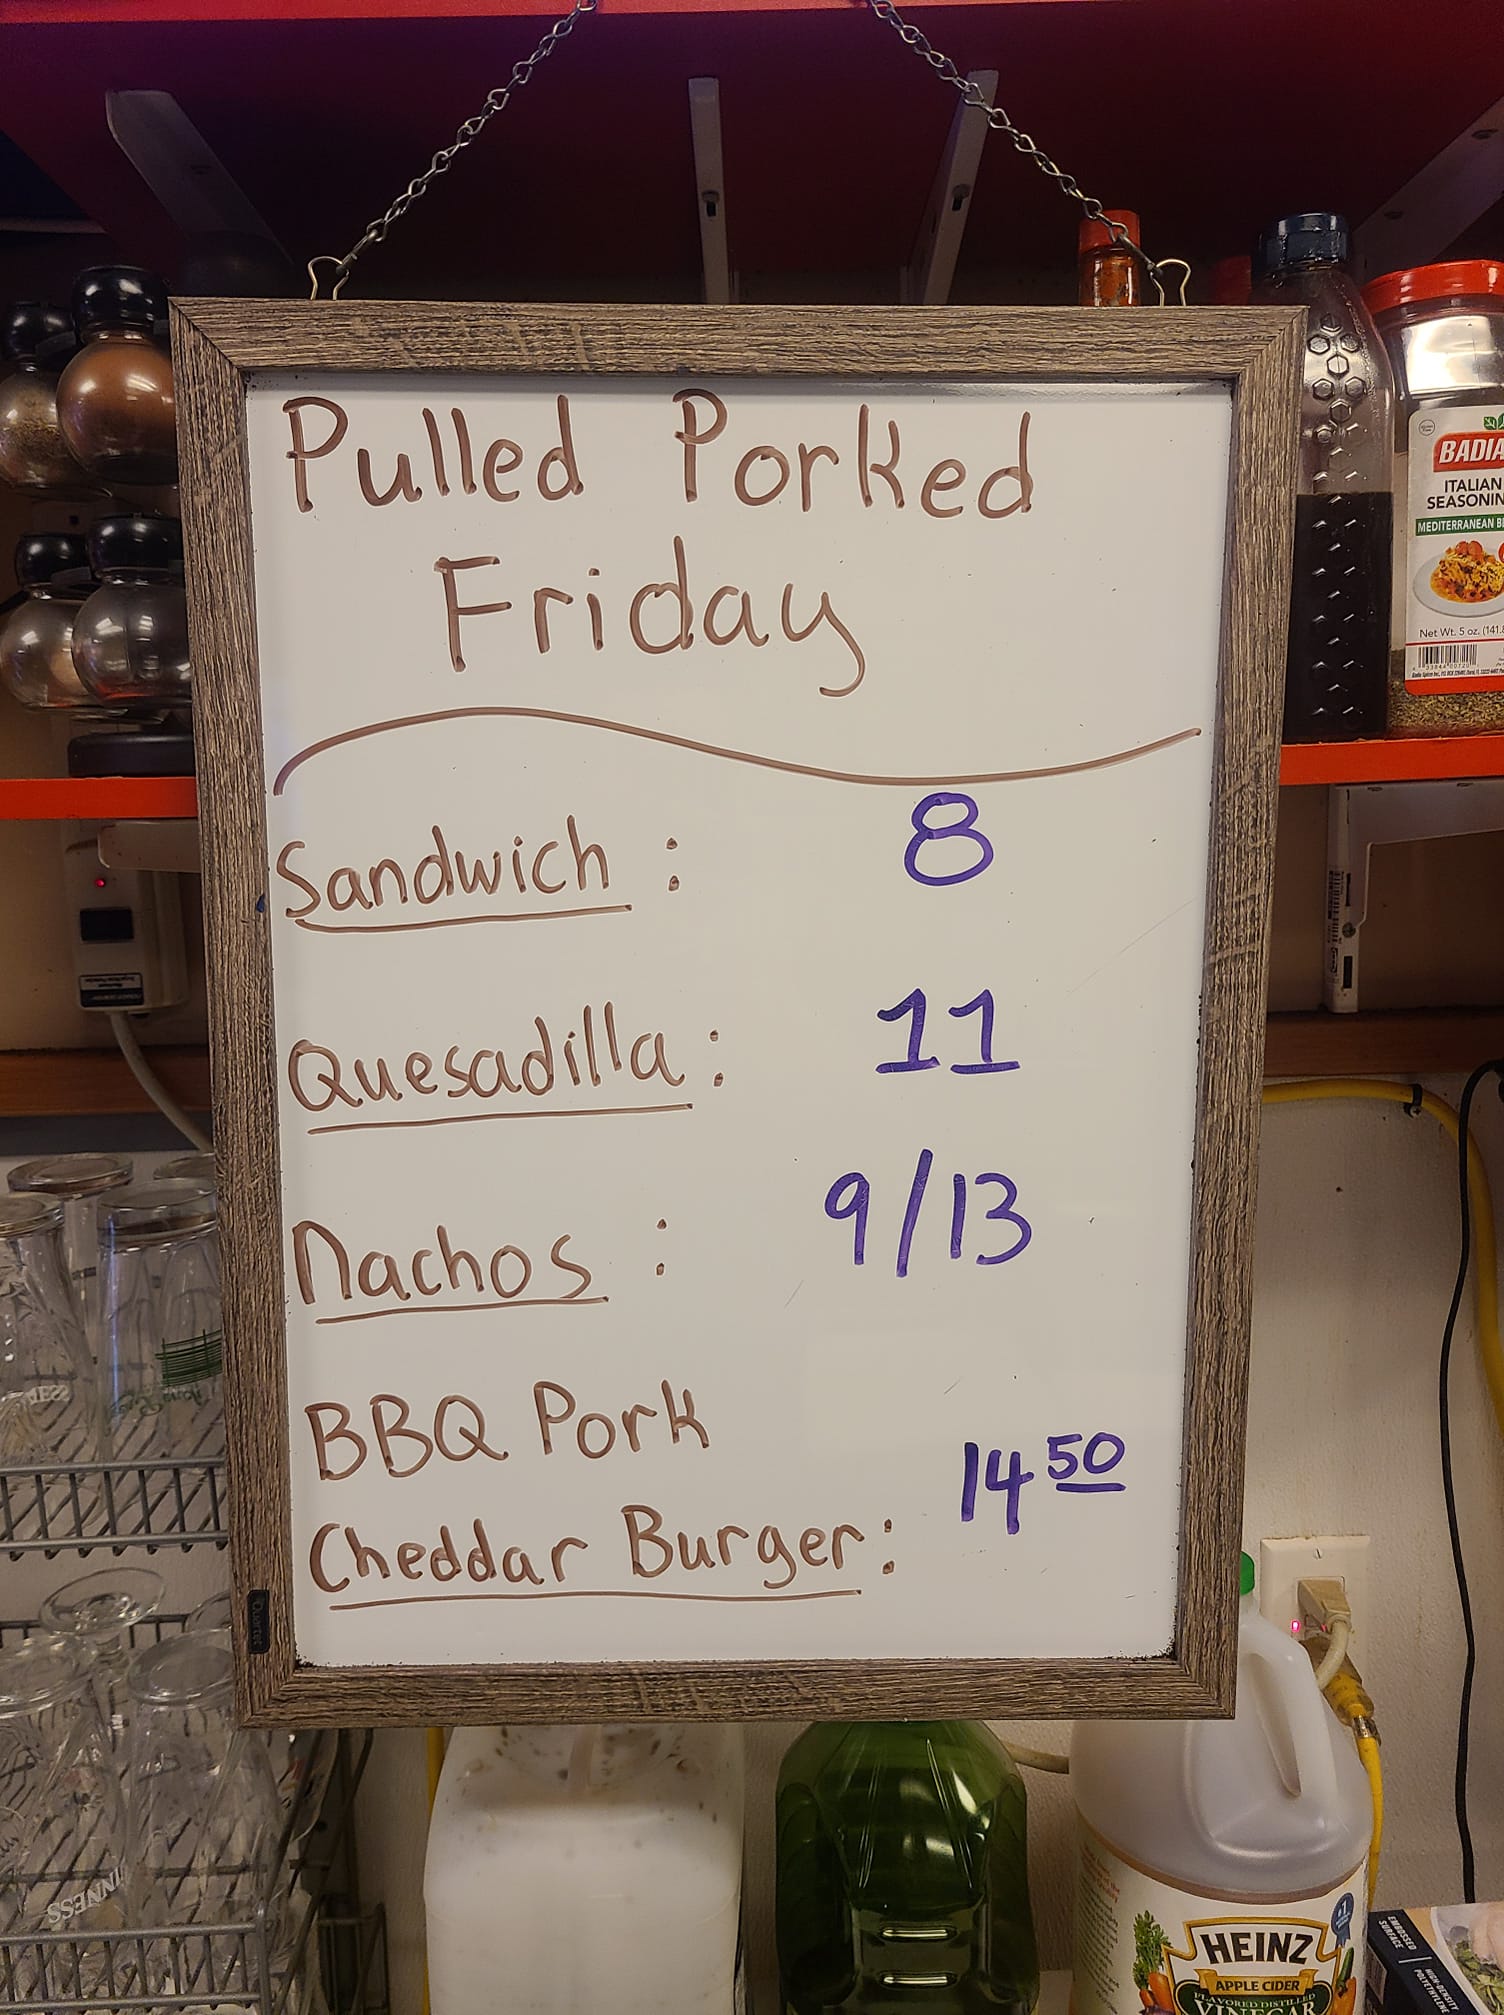 Pulled Porked
Friday
Sandwich : 8
Quesadilla : 11
Nachos : 9/13
BBQ Pork
Cheddar Burger : 14 50
Quartet
BADIA
ITALIAN
SEASONIN
MEDITERRANEAN B
Net Wt. 5 oz. (141.8
GUINNESS
HEINZ
APPLE CIDER
FLAVORED DISTILLED
VINEGAR
EMBOSSED
SURFACE
HIGH-DENSITY
POLYETHYLENE